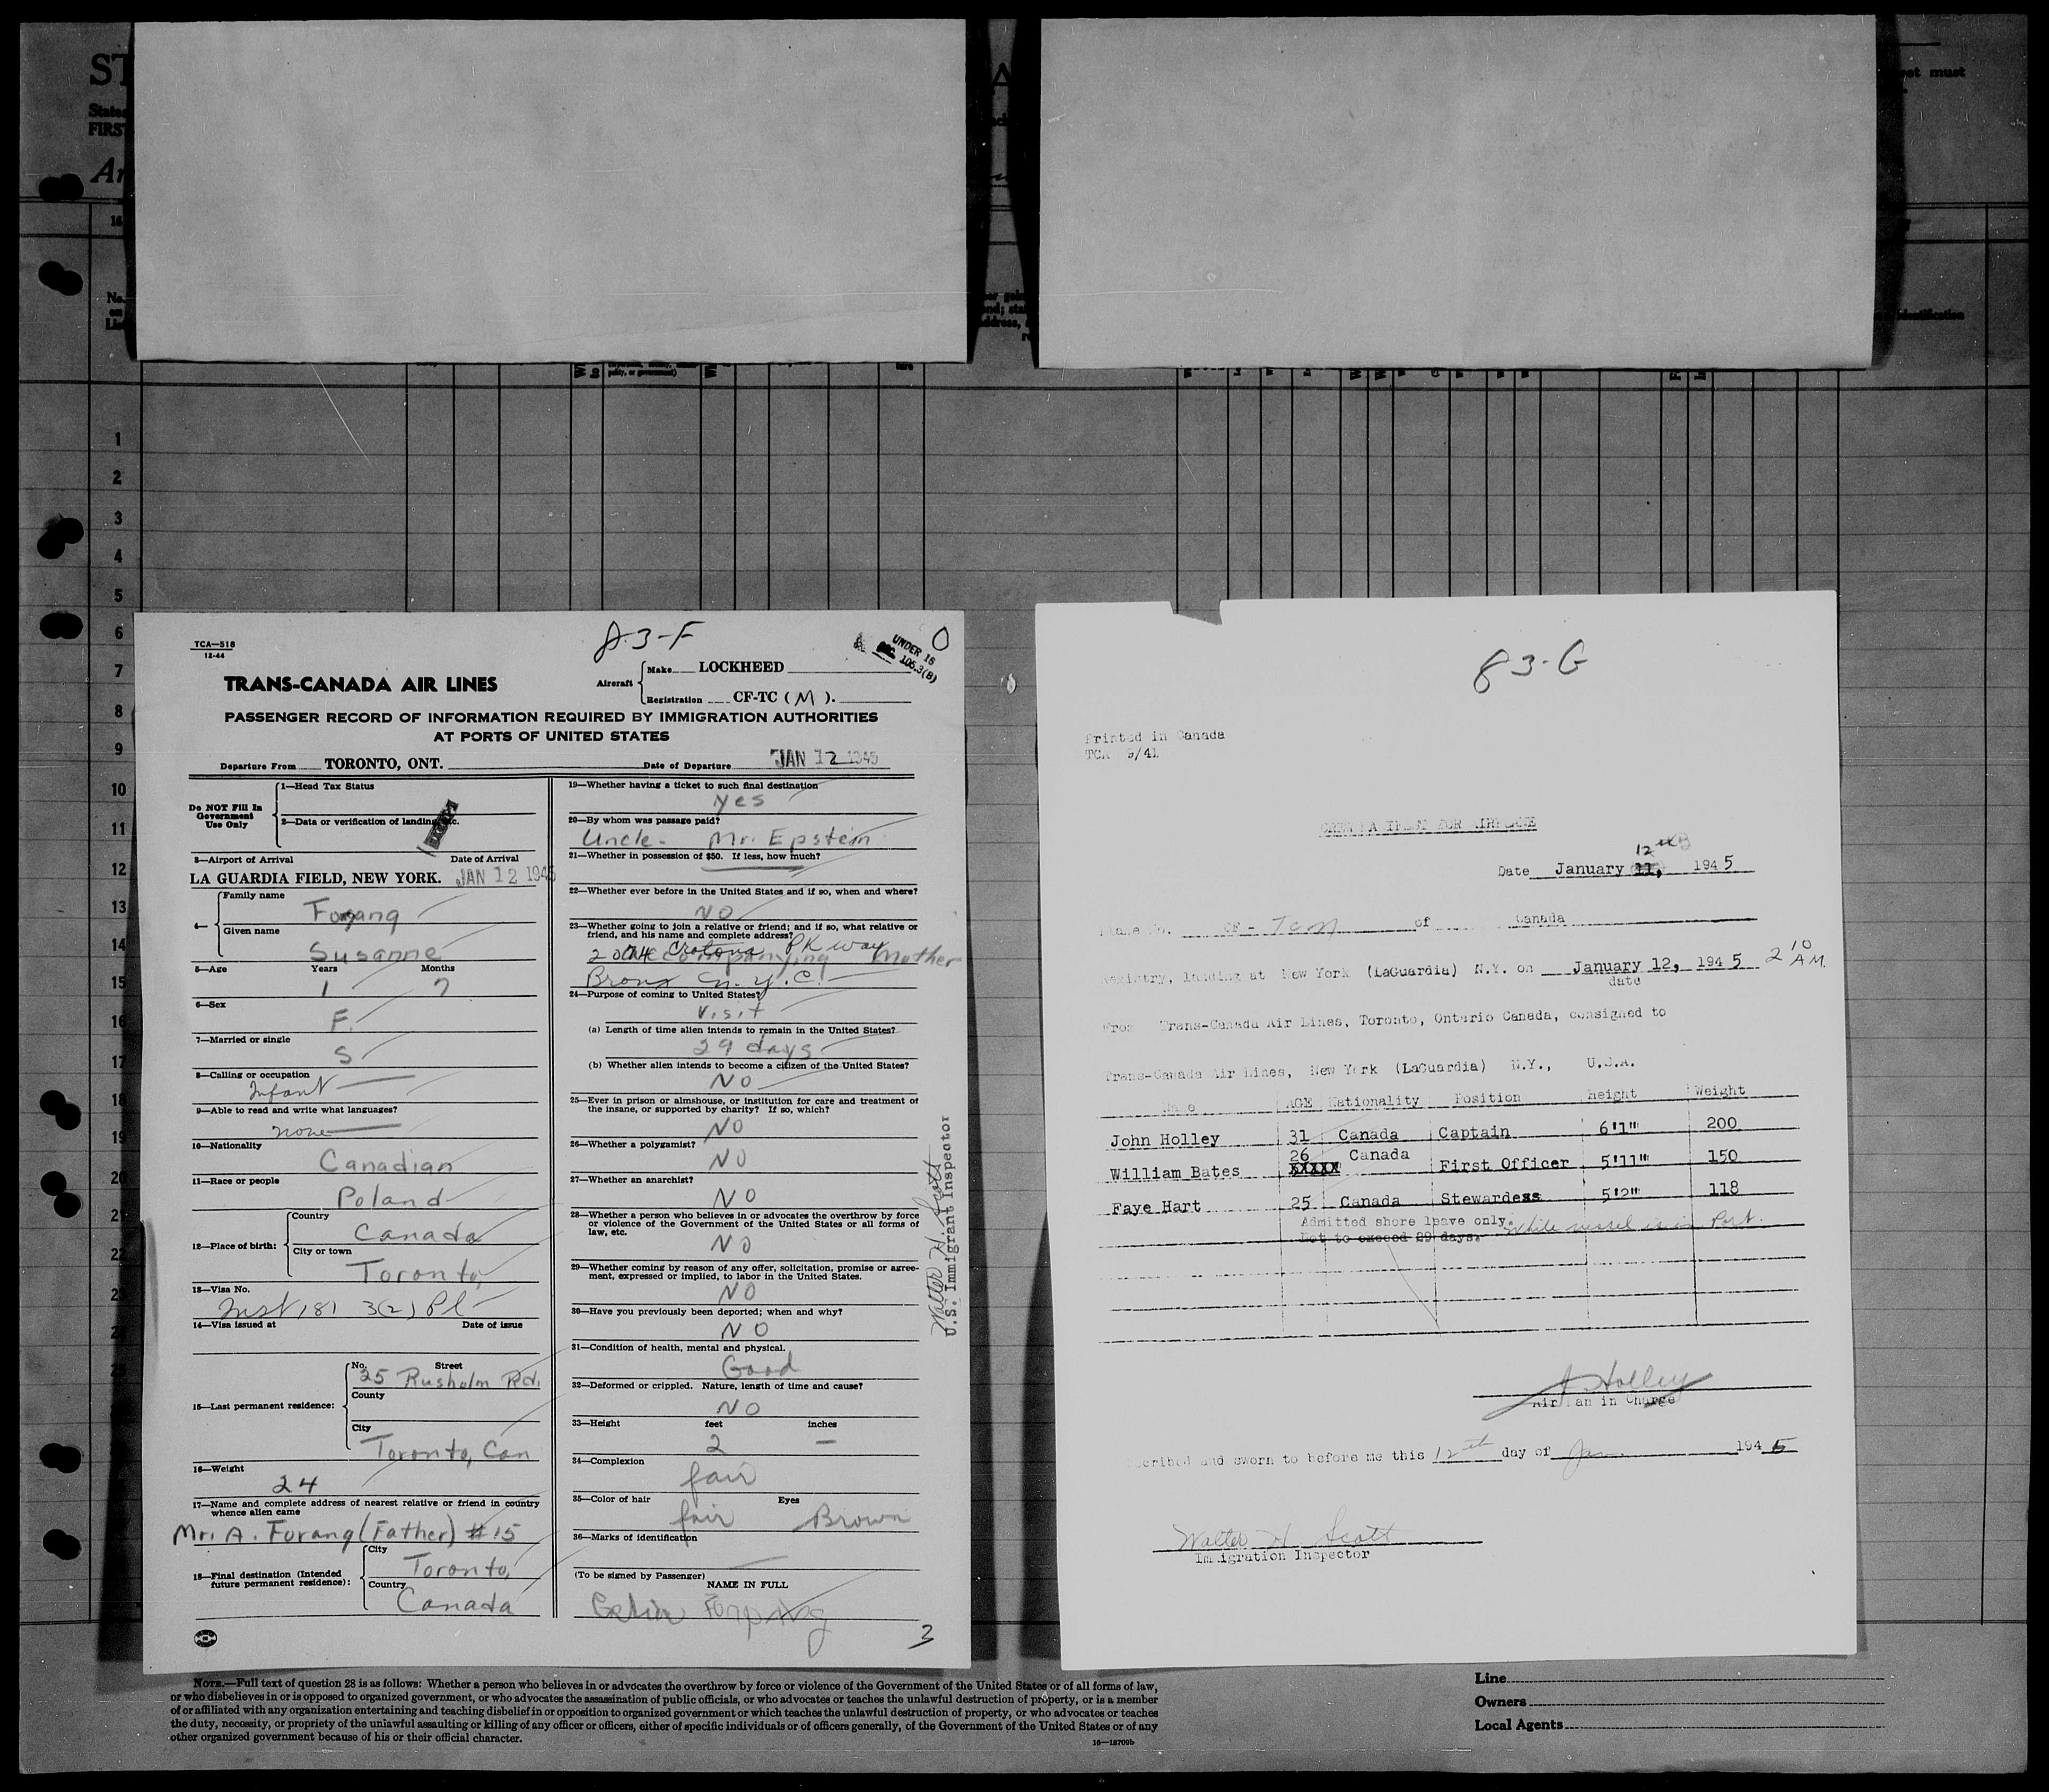 TCA—518
12-44
83-F
UNDER 16
106.3(B)
0
TRANS-CANADA AIR LINES
Aircraft
Make LOCKHEED
Registration CF-TC ( M ).
PASSENGER RECORD OF INFORMATION REQUIRED BY IMMIGRATION AUTHORITIES
AT PORTS OF UNITED STATES
Departure From TORONTO, ONT. Date of Departure JAN 12 1945
Do NOT Fill In
Government
Use Only
1—Head Tax Status
2—Data or verification of landing, etc.
3—Airport of Arrival Date of Arrival
LA GUARDIA FIELD, NEW YORK. JAN 12 1945
4— Family name
Given name
Susanne
5—Age Years Months
1 7
6—Sex
F.
7—Married or single
S
8—Calling or occupation
Infant
9—Able to read and write what languages?
none
10—Nationality
Canadian
11—Race or people
Poland
12—Place of birth:
Country
Canada
City or town
Toronto,
13—Visa No.
Inst 181 3(2) Pl
14—Visa issued at Date of issue
15—Last permanent residence:
No. Street
35 Rusholm Rd.
County
City
Toronto, Can
16—Weight
24
17—Name and complete address of nearest relative or friend in country
whence alien came
Mr. A. Forang (Father) #15
18—Final destination (Intended
future permanent residence):
City
Toronto,
Country
Canada
19—Whether having a ticket to such final destination
yes
20—By whom was passage paid?
Uncle - Mr. Epstein
21—Whether in possession of $50. If less, how much?
22—Whether ever before in the United States and if so, when and where?
NO
23—Whether going to join a relative or friend; and if so, what relative or
friend, and his name and complete address?
Crotona PK way
accompanying Mother
Bronx N.Y.C.
24—Purpose of coming to United States?
Visit
(a) Length of time alien intends to remain in the United States?
29 days
(b) Whether alien intends to become a citizen of the United States?
NO
25—Ever in prison or almshouse, or institution for care and treatment of
the insane, or supported by charity? If so, which?
NO
26—Whether a polygamist?
NO
27—Whether an anarchist?
NO
28—Whether a person who believes in or advocates the overthrow by force
or violence of the Government of the United States or all forms of
law, etc.
NO
29—Whether coming by reason of any offer, solicitation, promise or agree-
ment, expressed or implied, to labor in the United States.
NO
30—Have you previously been deported; when and why?
NO
31—Condition of health, mental and physical.
Good
32—Deformed or crippled. Nature, length of time and cause?
NO
33—Height feet inches
2 —
34—Complexion
fair
35—Color of hair Eyes
fair Brown
36—Marks of identification
(To be signed by Passenger)
NAME IN FULL
3
Walter H. Scott
U.S. Immigrant Inspector
83-G
Printed in Canada
TCA 9/41
CREW MANIFEST FOR AIRPLANE
12th
Date January 11, 1945
Plane No. CF-TCM of Canada
Registry, landing at New York (LaGuardia) N.Y. on January 12, 1945 2 10 AM.
date
From Trans-Canada Air Lines, Toronto, Ontario Canada, consigned to
Trans-Canada Air Lines, New York (LaGuardia) N.Y., U.S.A.
Name AGE Nationality Position Height Weight
John Holley 31 Canada Captain 6'1" 200
William Bates 26 XXXXX Canada First Officer 5'11" 150
Faye Hart 25 Canada Stewardess 5'2" 118
Admitted shore leave only. While vessel is in Port.
Not to exceed 29 days.
J Holley
Airman in Charge
Subscribed and sworn to before me this 12th day of Jan 1945
Walter H Scott
Immigration Inspector
1
2
3
4
5
6
7
8
9
10
11
12
13
14
15
16
17
18
19
20
NOTE.—Full text of question 28 is as follows: Whether a person who believes in or advocates the overthrow by force or violence of the Government of the United States or of all forms of law,
or who disbelieves in or is opposed to organized government, or who advocates the assassination of public officials, or who advocates or teaches the unlawful destruction of property, or is a member
of or affiliated with any organization entertaining and teaching disbelief in or opposition to organized government or which teaches the unlawful destruction of property, or who advocates or teaches
the duty, necessity, or propriety of the unlawful assaulting or killing of any officer or officers, either of specific individuals or of officers generally, of the Government of the United States or of any
other organized government because of his or their official character.
16—18709b
Line
Owners
Local Agents